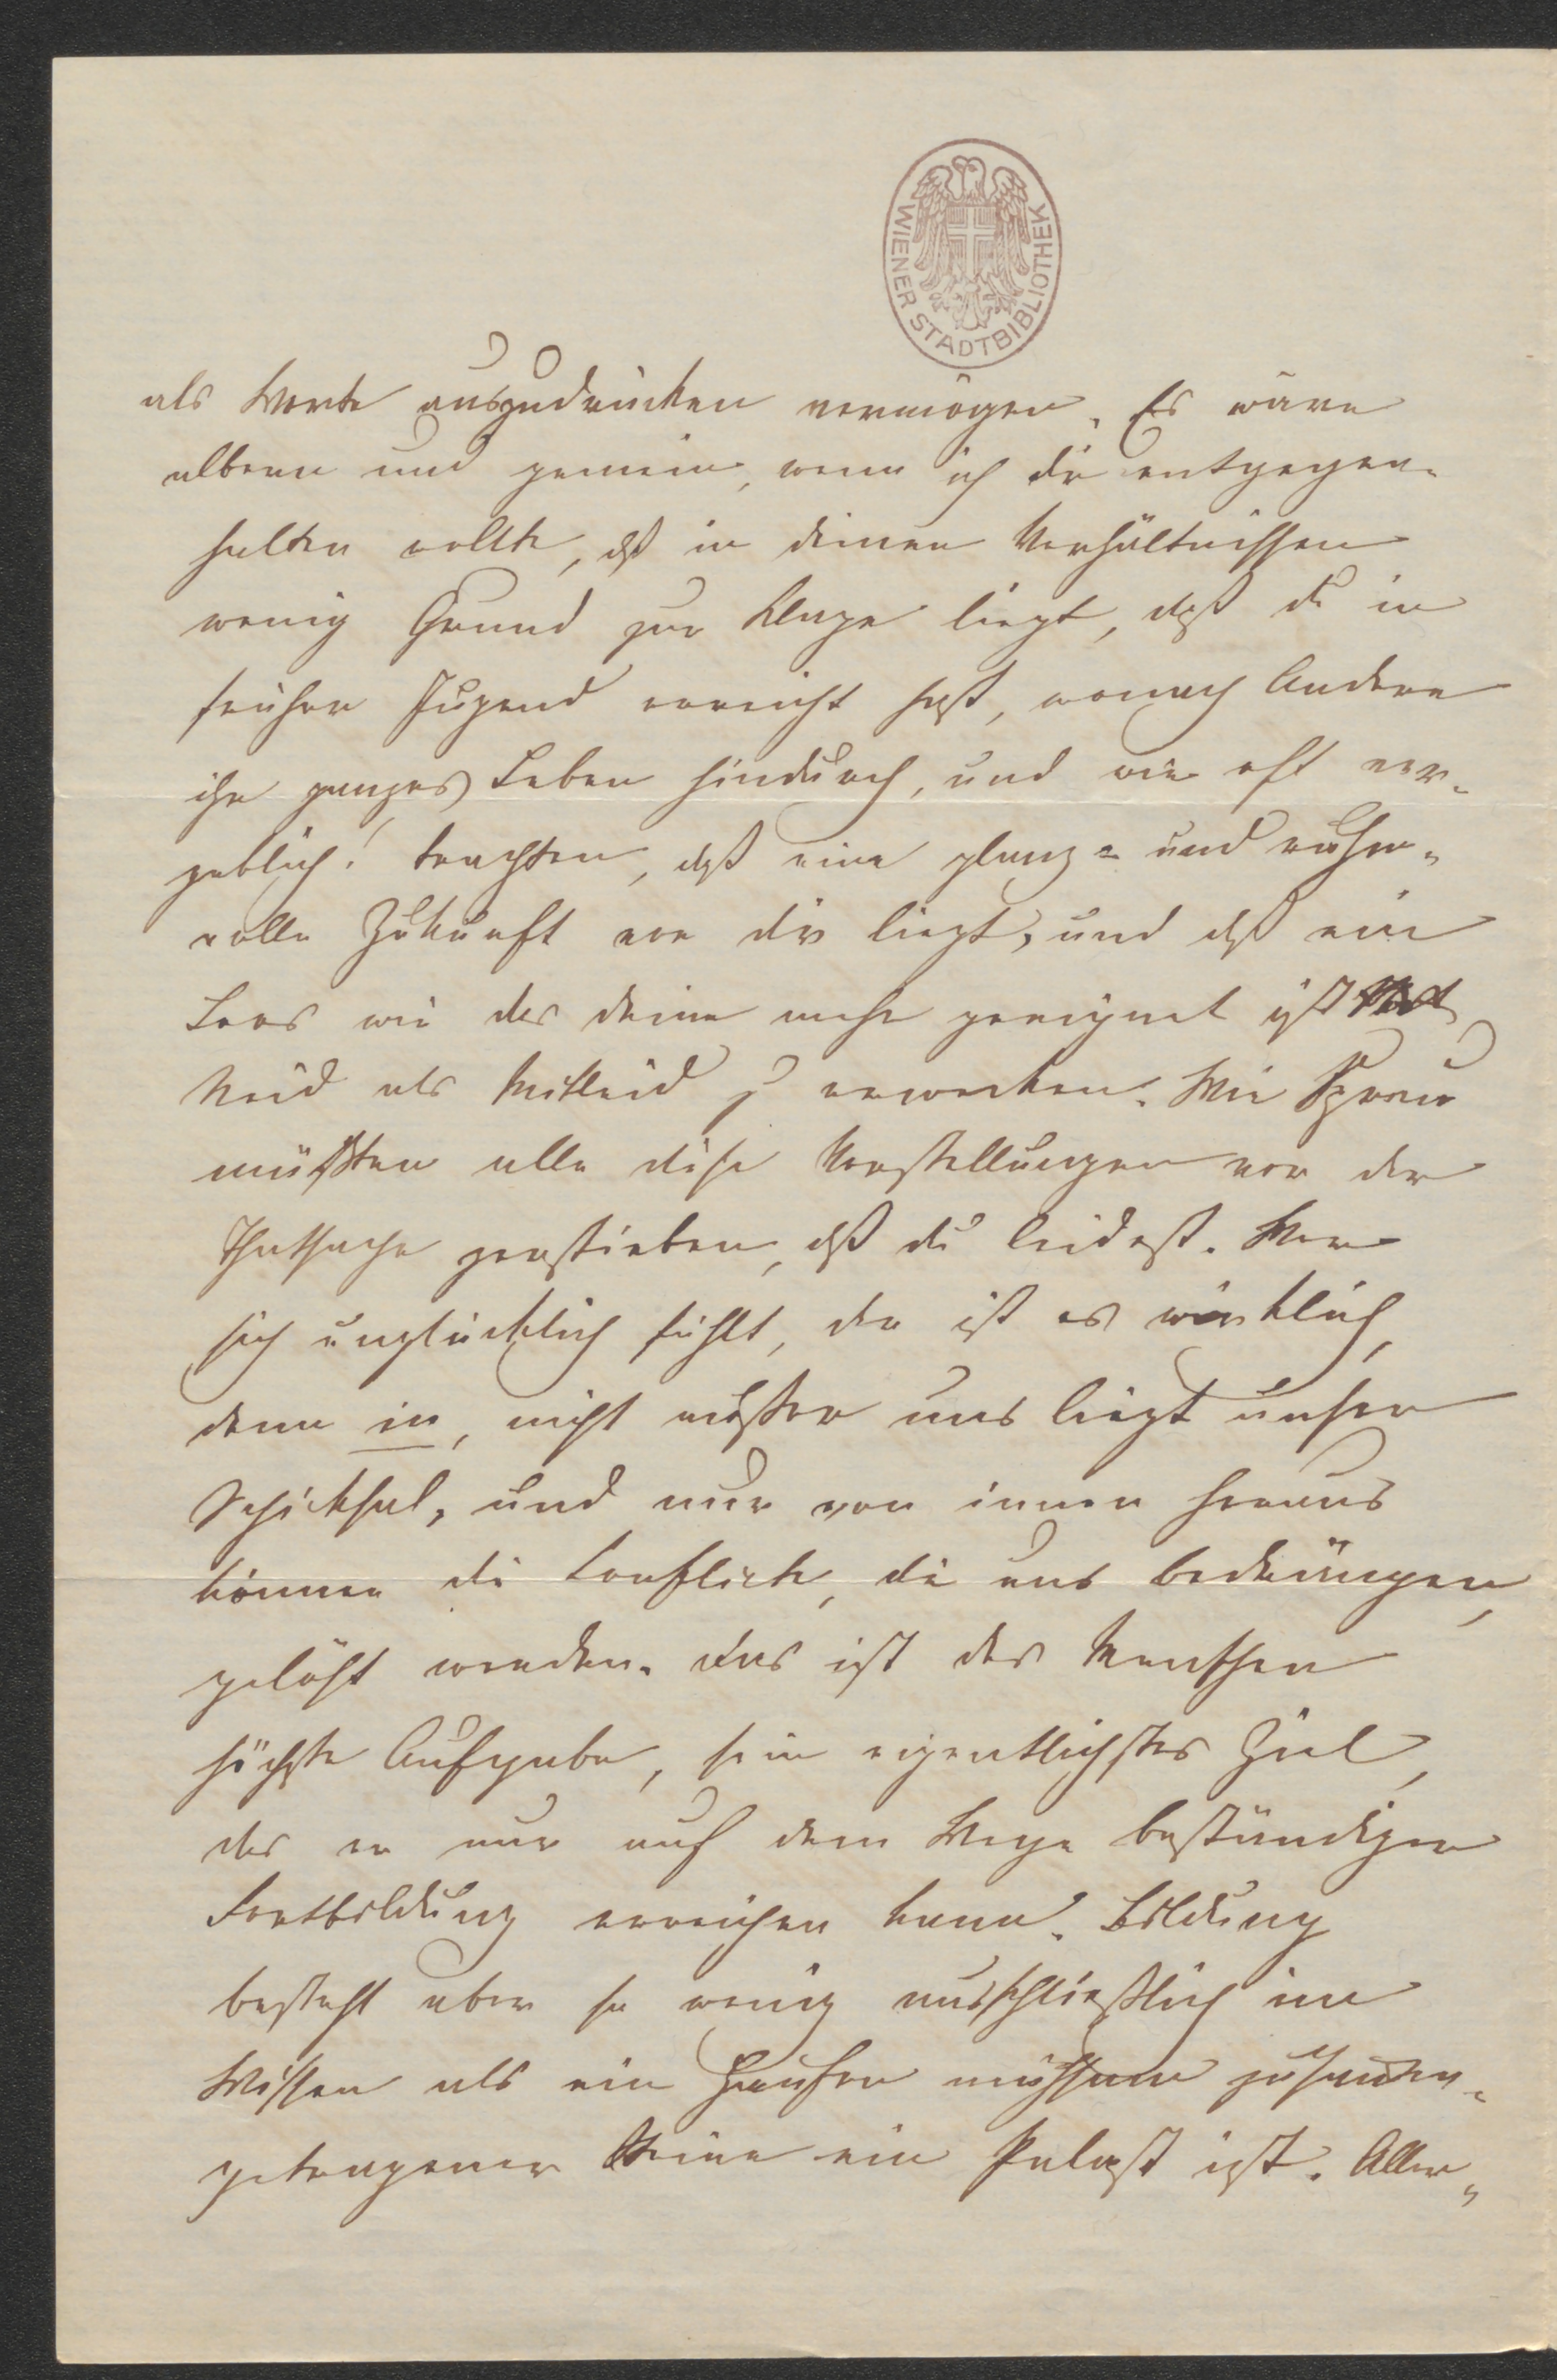 WIENER STADTBIBLIOTHEK
als Worte auszudrücken vermögen. Es wäre
albern und gemein, wenn ich dir entgegen-
halten wollte, dß in deinen Verhältnissen
wenig Grund zur Klage liegt, daß du in
früher Jugend erreicht hast, wonach Andere
ihr ganzes Leben hindurch, und wie oft ver-
geblich! trachten, dß eine glanz- und ruhm-
volle Zukunft vor dir liegt, und dß ein
Loos wie das deine mehr geeignet ist
Neid als Mitleid z erwecken. Wie Spreu
müßten alle diese Vorstellungen vor der
Thatsache zerstieben, dß du leidest. Wer
sich unglücklich fühlt, der ist es wirklich,
denn in, nicht außer uns liegt unser
Schicksal, und nur von innen heraus
können die Conflicte, die uns bedrängen,
gelöst werden. Das ist des Menschen
höchste Aufgabe, sein eigentlichstes Ziel,
das er nur auf dem Wege beständiger
Fortbildung erreichen kann. Bildung
besteht aber so wenig ausschließlich im
Wissen als ein Haufen mühsam zusammen-
getragener Steine ein Palast ist. Aller-